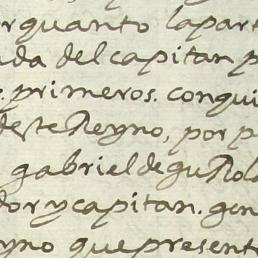 rquanto lapart
ada del capitan p
primeros. conqui
desteReyno, por p
gabriel de gu
dor y capitan. gen
yno que present